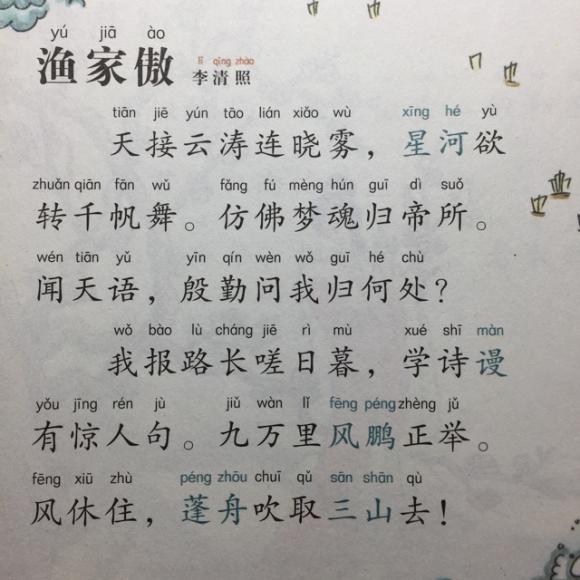 yú jiā ào
渔家傲
lǐ qīng zhào
李清照
tiān jiē yún tāo lián xiǎo wù xīng hé yù
天接云涛连晓雾，星河欲
zhuǎn qiān fān wǔ fǎng fú mèng hún guī dì suǒ
转千帆舞。仿佛梦魂归帝所。
wén tiān yǔ yīn qín wèn wǒ guī hé chù
闻天语，殷勤问我归何处？
wǒ bào lù cháng jiē rì mù xué shī màn
我报路长嗟日暮，学诗谩
yǒu jīng rén jù jiǔ wàn lǐ fēng péng zhèng jǔ
有惊人句。九万里风鹏正举。
fēng xiū zhù péng zhōu chuī qǔ sān shān qù
风休住，蓬舟吹取三山去！